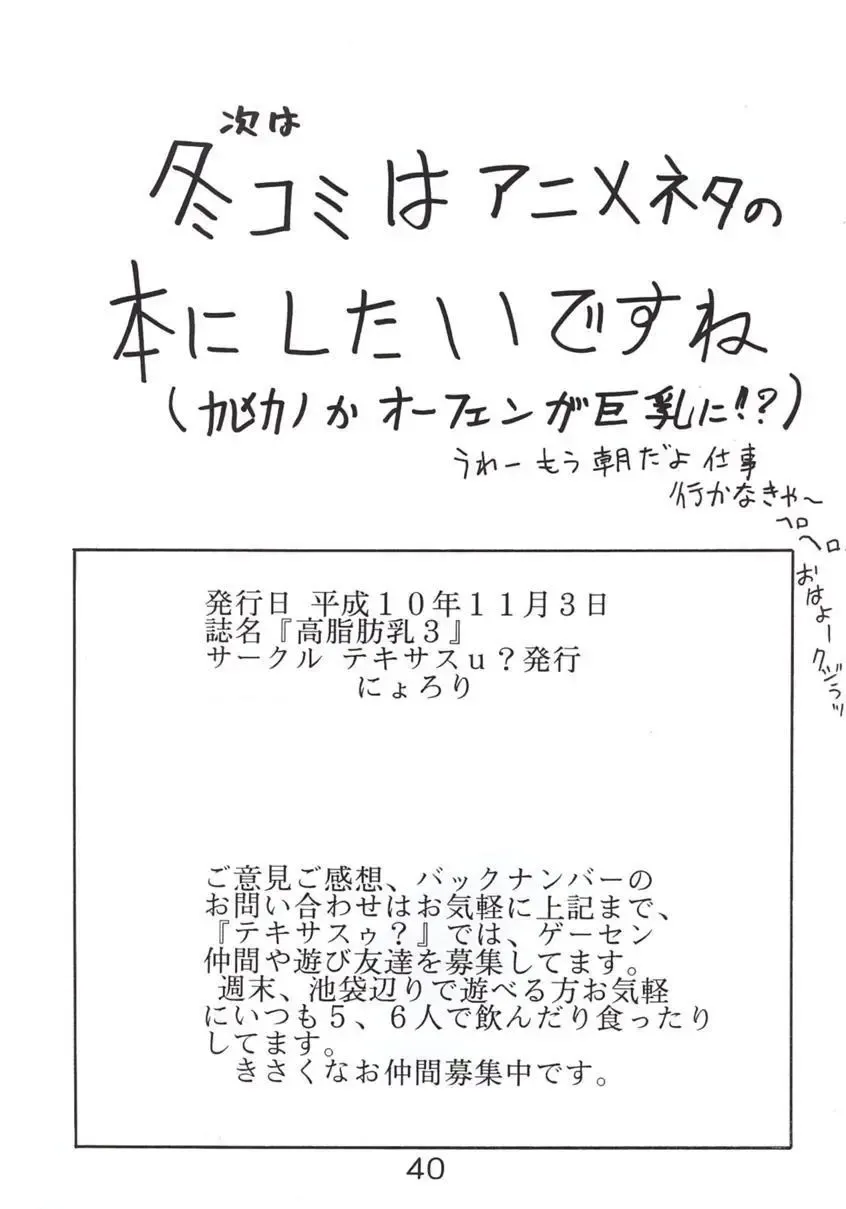 次は
冬コミはアニメネタの
本にしたいですね
か オーフェンが巨乳に!!?)
うれー もう朝だよ 仕事
行かなきゃ〜
ヘロ
ヘロ
おはよー
発行日 平成10年11月3日
誌名『高脂肪乳3』
サークル テキサスu?発行
にょろり
ご意見ご感想、バックナンバーの
お問い合わせはお気軽に上記まで、
『テキサスゥ?』では、ゲーセン
仲間や遊び友達を募集してます。
週末、池袋辺りで遊べる方お気軽
にいつも5、6人で飲んだり食ったり
してます。
きさくなお仲間募集中です。
40